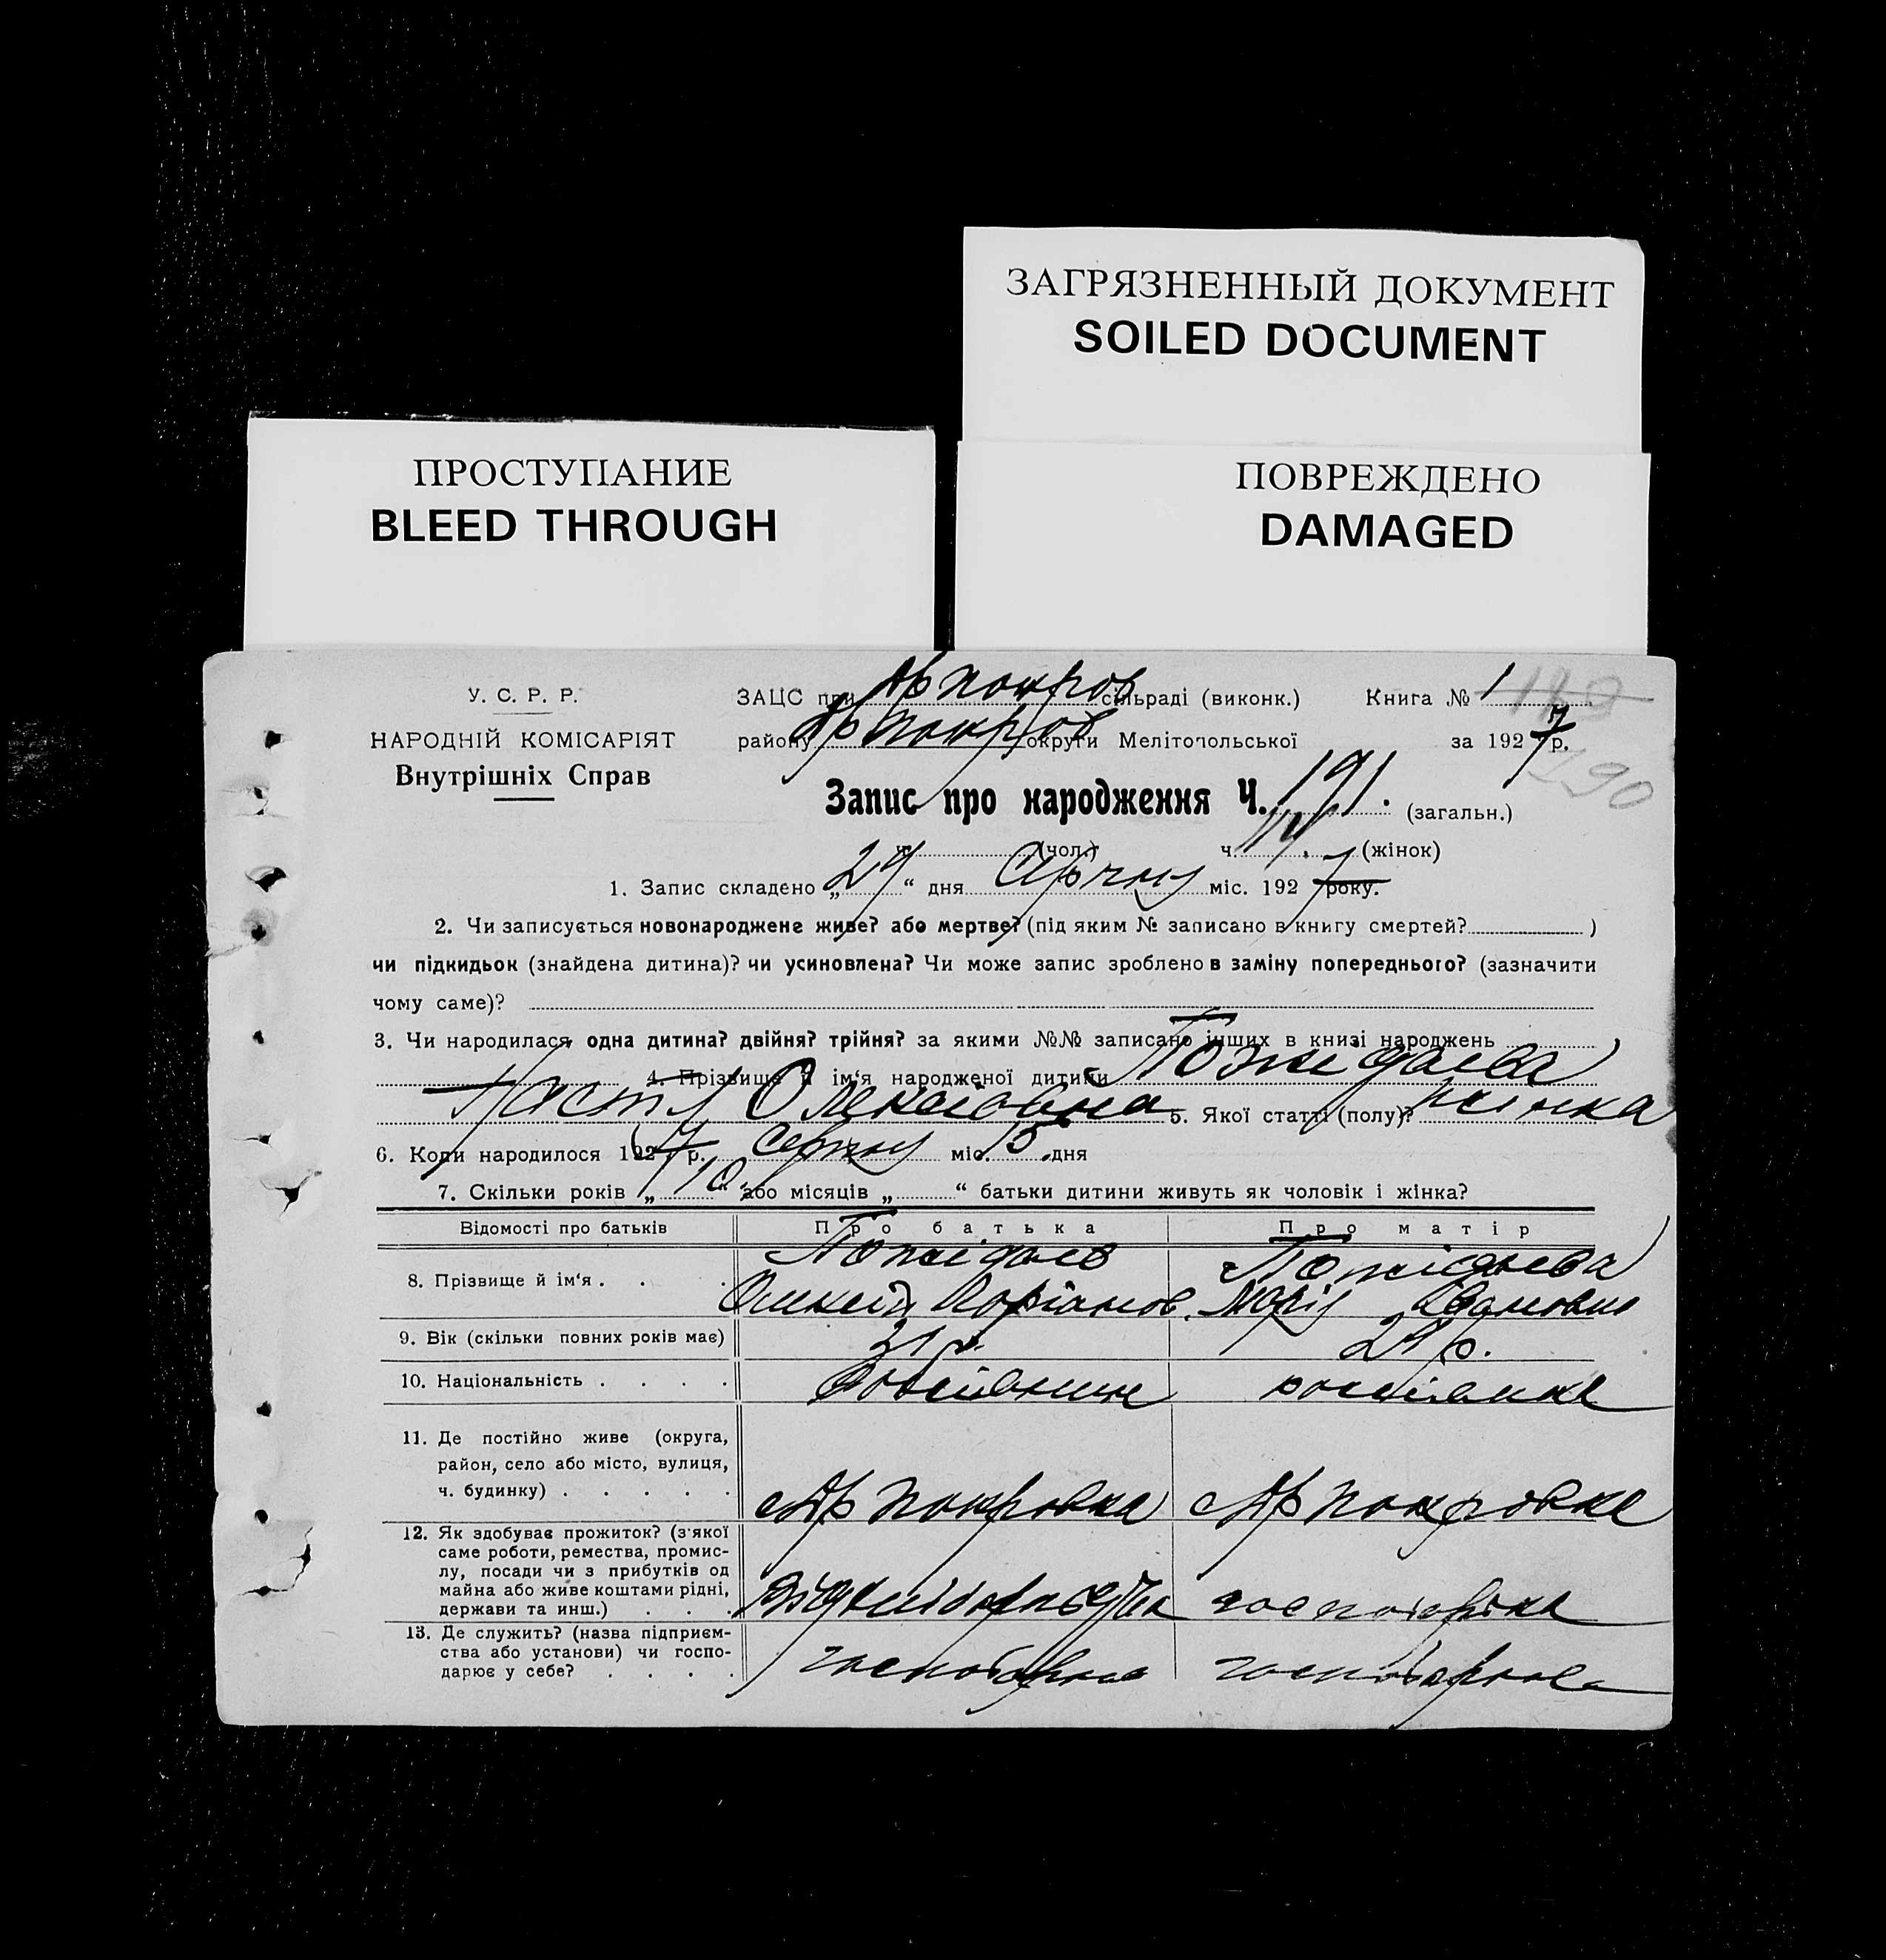 ЗАГРЯЗНЕННЫЙ ДОКУМЕНТ
SOILED DOCUMENT
ПРОСТУПАНИЕ
BLEED THROUGH
ПОВРЕЖДЕНО
DAMAGED
У. С. Р. Р.
НАРОДНІЙ КОМІСАРІЯТ
Внутрішніх Справ
ЗАЦС при Ар покров сільраді (виконк.) Книга № 1
району Ар покров округи Мелітопольської за 1927 р.
190
Запис про народження Ч. 191. (загальн.)
ч. (чол.) ч. (жінок)
1. Запис складено „29“ дня Серпня міс. 1927 року.
2. Чи записується новонароджене живе? або мертве? (під яким № записано в книгу смертей? )
чи підкидьок (знайдена дитина)? чи усиновлена? Чи може запис зроблено в заміну попереднього? (зазначити
чому саме)?
3. Чи народилася одна дитина? двійня? трійня? за якими №№ записано інших в книзі народжень
4. Прізвище й ім‘я народженої дитини Пожидаева
Настя Олексіовна 5. Якої статті (полу)? жінка
6. Коли народилося 1927 р. серпня міс. 15 дня
7. Скільки років „10“ або місяців „ “ батьки дитини живуть як чоловік і жінка?
Відомості про батьків Про батька Про матір
8. Прізвище й ім‘я . . . Пожідаев Пожідаева
Олексій Марія Івановна
9. Вік (скільки повних років має) 31 р. 29 р.
10. Національність . . . . россіянка
11. Де постійно живе (округа,
район, село або місто, вулиця,
ч. будинку) . . . . . Ар покровка Ар покровка
12. Як здобуває прожиток? (з якої
саме роботи, ремества, промис-
лу, посади чи з прибутків од
майна або живе коштами рідні,
держави та инш.) . . .
13. Де служить? (назва підприєм-
ства або установи) чи госпо-
дарює у себе? . . . .